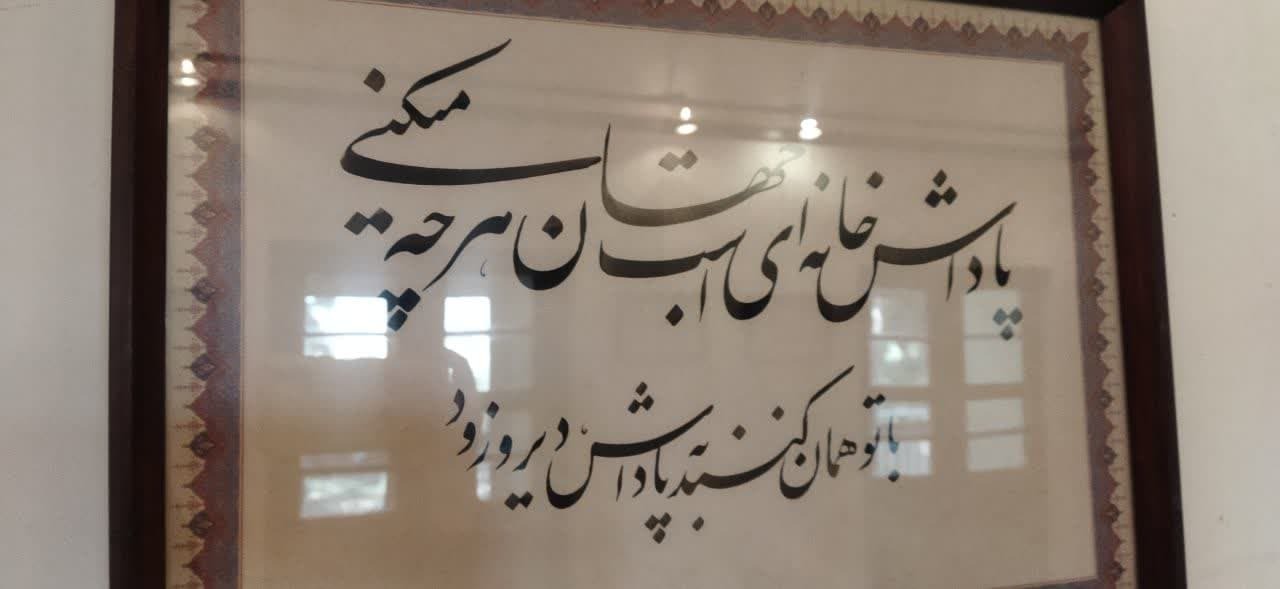 پاداش خانه‌ای است جهان هر چه میکنی
با تو همان کنند به پاداش دیر و زود